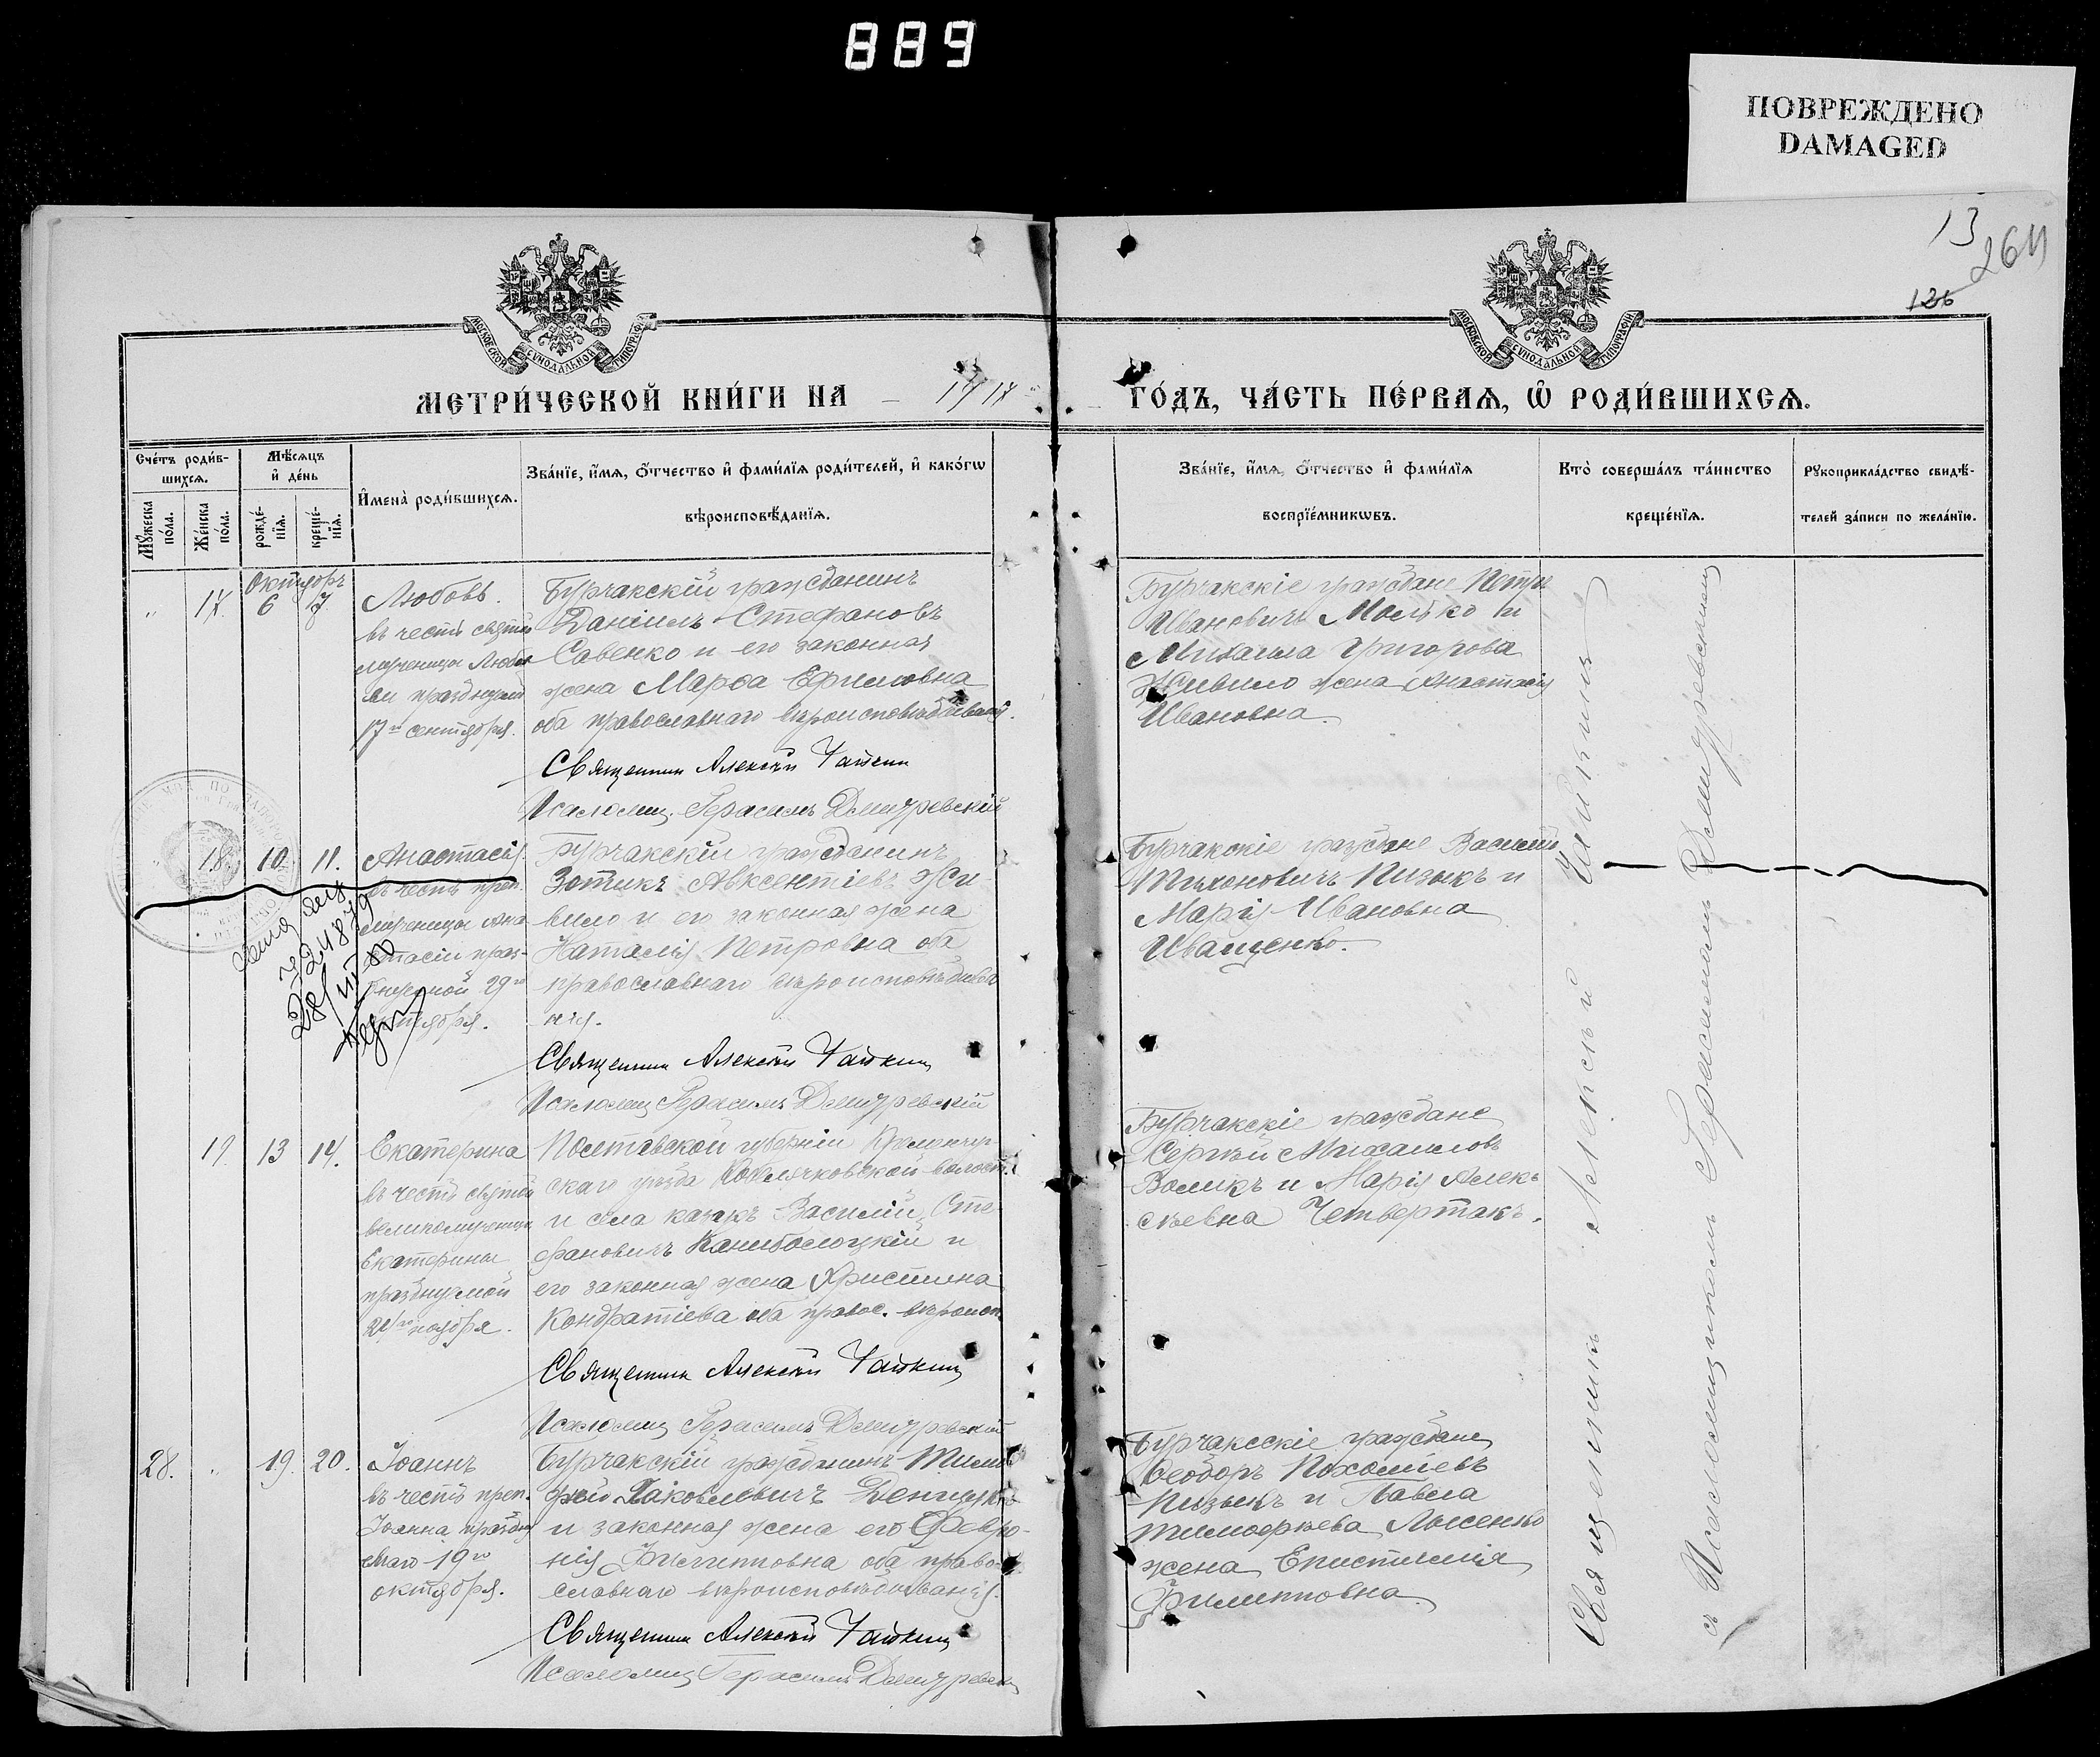 889
ПОВРЕЖДЕНО
DAMAGED
13
264
126
МОСКОВСКОЙ СУНОДАЛЬНОЙ ТИПОГРАФІИ
МОСКОВСКОЙ СУНОДАЛЬНОЙ ТИПОГРАФІИ
МЕТРИ́ЧЕСКОЙ КНИ́ГИ НА 1917
ГО́ДЪ, ЧА́СТЬ ПЕ́РВАѦ, Ѿ РОДИ́ВШИХСѦ.
Сче́тъ роди́в-
шихсѧ.
Мꙋ́жеска по́ла.
Же́нска по́ла.
Мѣ́сѧцъ
и҆ де́нь
рожде́-
нїѧ.
креще́-
нїѧ.
И҆мена̀ роди́вшихсѧ.
Зва́нїе, и҆́мѧ, ѻ҆́тчество и҆ фами́лїѧ роди́телей, и҆ како́гѡ
вѣроисповѣ́данїѧ.
Зва́нїе, и҆́мѧ, ѻ҆́тчество и҆ фами́лїѧ
воспрїе́мникѡвъ.
Кто̀ соверша́лъ та́инство
креще́нїѧ.
Рꙋкоприкла́дство свидѣ́-
телей за́писи по жела́нїю.
Октябрь
" 17. 6 7
Любовь.
въ честь святой
мученицы Любо
ви празднуемой
17го сентября.
Бурчакскій гражданинъ
Даніилъ Стефановъ
Савенко и его законная
жена Марѳа Ефимовна
оба православнаго вѣроисповѣдыванія.
Священник Алексѣй Чайкин
Псаломщ. Герасимъ Демуревскій
Бурчакскіе граждане Петръ
Ивановичъ Малько и
Михаила Григорова
Живило жена Анастасія
Ивановна.
18. 10. 11.
Анастасія
въ честь преп.
мученицы Ана
стасіи праз-
днуемой 29го
октября.
Бурчакскій гражданинъ
Зотикъ Авксентіевъ Жи-
вило и его законная жена
Наталія Петровна оба
православнаго вѣроисповѣдыва
нія.
Священник Алексѣй Чайкин
Псаломщ Герасимъ Демуревскій
Бурчакскіе граждане Василій
Тихоновичъ Пизыкъ и
Марія Ивановна
Иващенко.
19. 13 14.
Екатерина
въ честь святой
великомученицы
Екатерины
празднуемой
24го ноября.
Полтавской губерніи Кременчуг-
скаго уѣзда волост.
и села казакъ Василій Сте
фановичъ и
его законная жена Христина
Кондратіева оба правос. вѣроисп.
Священник Алексѣй Чайкин
Псаломщ Герасимъ Демуревскій
Бурчакскіе граждане
Сергѣй Михаиловъ
Воликъ и Марія Алек-
сѣевна Четвертакъ.
28. " 19. 20.
Іоаннъ
въ честь преп.
Іоанна праздну
емаго 19го
октября.
Бурчакскій гражданинъ Тимо
фей Яковлевичъ
и законная жена его Февро-
нія Филипповна оба право-
славнаго вѣроисповѣдыванія.
Священник Алексѣй Чайкин
Псаломщ Герасимъ Демуревскій
Бурчакскіе граждане
Ѳеодоръ
Пизыкъ и Павла
Тимофѣева Лысенко
жена Епистимія
Филипповна.
Священникъ Алексѣй Чайкинъ
съ Псаломщикомъ Герасимомъ Демуревскимъ